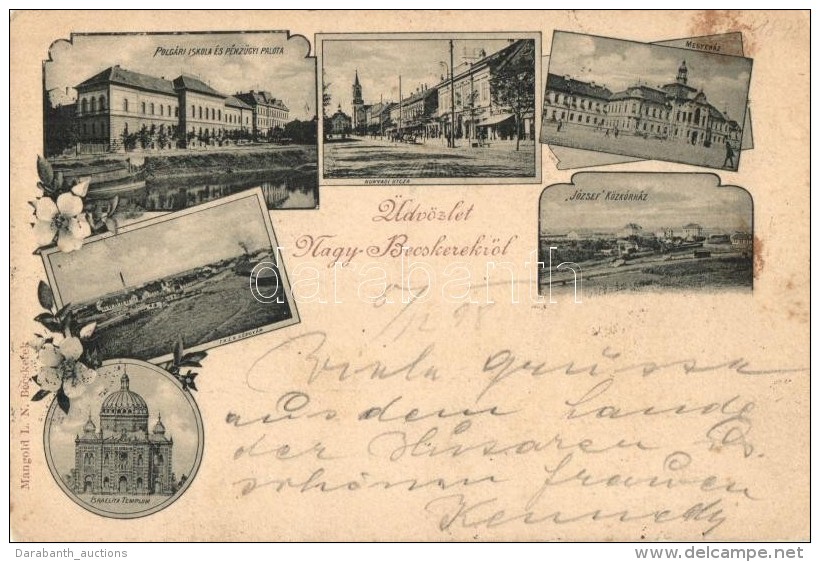 POLGÁRI ISKOLA ÉS PÉNZÜGYI PALOTA
HUNYADI UTCZA
MEGYEHÁZ
„JÓZSEF” KÖZKÓRHÁZ
Üdvözlet
Nagy-Becskerekről
ISRAELITA TEMPLOM
Mangold L. N. Becskerek
Viele grüsse
aus dem Lande
der Husaren &
schönen frauen
Kennedy
delcampe.net
Darabanth_auctions
delcampe.net